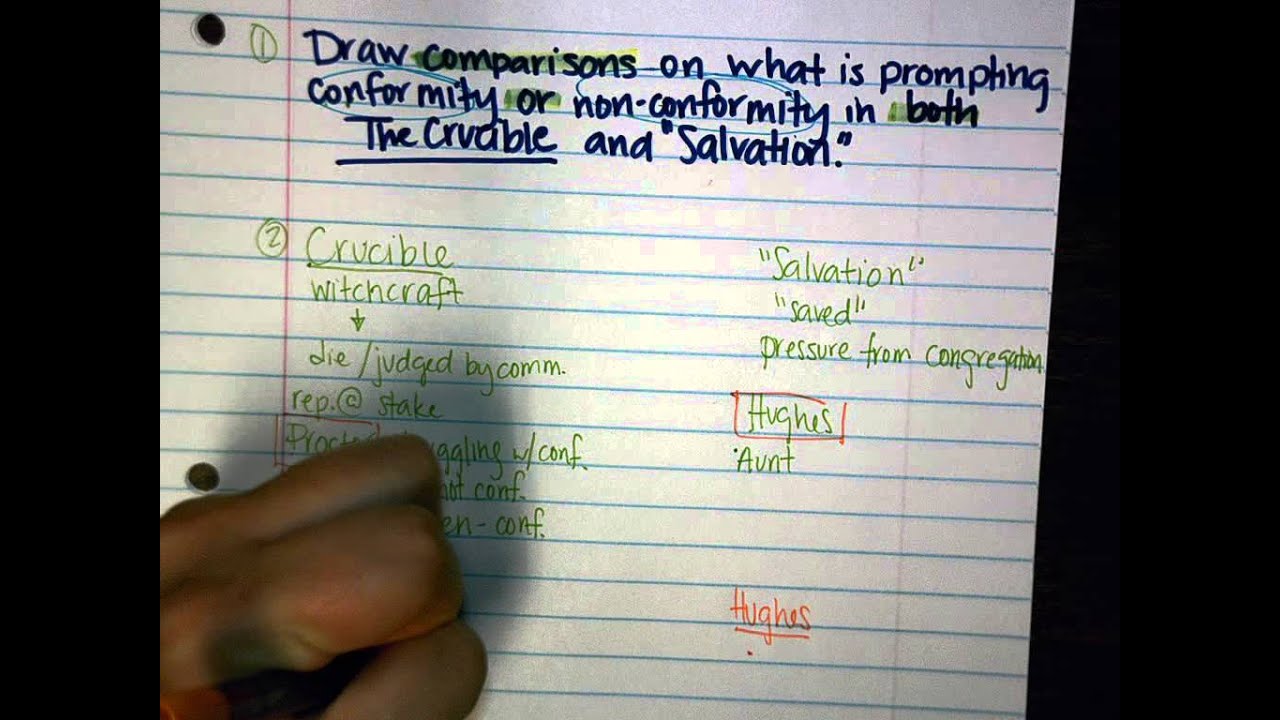 ① Draw comparisons on what is prompting
conformity or non-conformity in both
The Crucible and "Salvation."
② Crucible
witchcraft
die/judged by comm.
rep. @ stake
w/conf.
not conf.
conf.
"Salvation"
"saved"
pressure from congregation.
Hughes
Aunt
Hughes